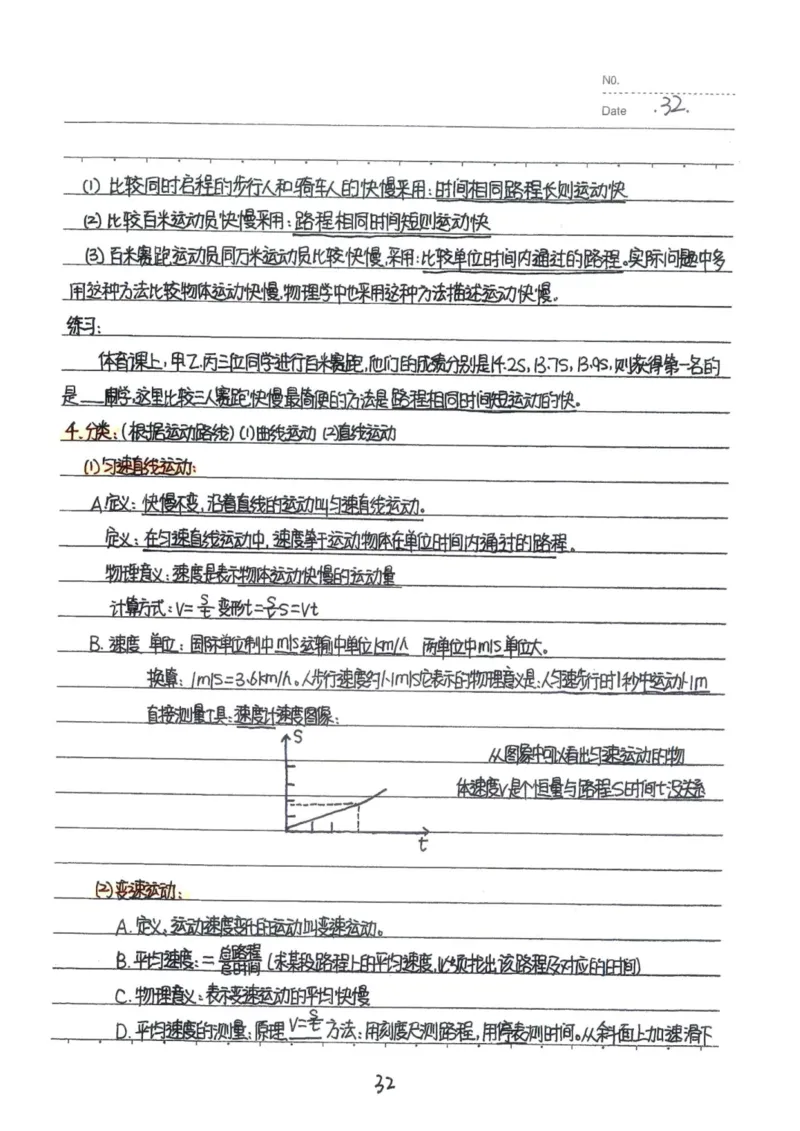 NO.
Date .32.
(1) 比较同时启程的步行人和骑车人的快慢采用:时间相同路程长则运动快
(2) 比较百米运动员快慢采用:路程相同时间短则运动快
(3) 百米赛跑运动员同万米运动员比较快慢,采用:比较单位时间内通过的路程。实际问题中多
用这种方法比较物体运动快慢,物理学中也采用这种方法描述运动快慢。
练习:
体育课上,甲、乙、丙三位同学进行百米赛跑,他们的成绩分别是14.2S,13.7S,13.9S,则获得第一名的
是 同学,这里比较三人赛跑快慢最简便的方法是路程相同时间短运动的快。
4.分类:(根据运动路线)(1)曲线运动 (2)直线运动
(1)匀速直线运动:
A.定义:快慢不变,沿着直线的运动叫匀速直线运动。
定义:在匀速直线运动中,速度等于运动物体在单位时间内通过的路程。
物理意义:速度是表示物体运动快慢的运动量
计算方式:V=S/t 变形t=S/v S=Vt
B. 速度 单位:国际单位制中m/s运输中单位km/h 两单位中m/s单位大。
换算:1m/s=3.6km/h。人步行速度约1.1m/s它表示的物理意义是:人匀速步行时1秒中运动1.1m
直接测量工具:速度计速度图象:
S
从图象中可以看出匀速运动的物
体速度V是个恒量与路程S时间t没关系
t
(2)变速运动:
A.定义:运动速度变化的运动叫变速运动。
B.平均速度:=总路程/总时间(求某段路程上的平均速度,必须找出该路程及对应的时间)
C.物理意义:表示变速运动的平均快慢
D.平均速度的测量:原理V=S/t 方法:用刻度尺测路程,用停表测时间。从斜面上加速滑下
32